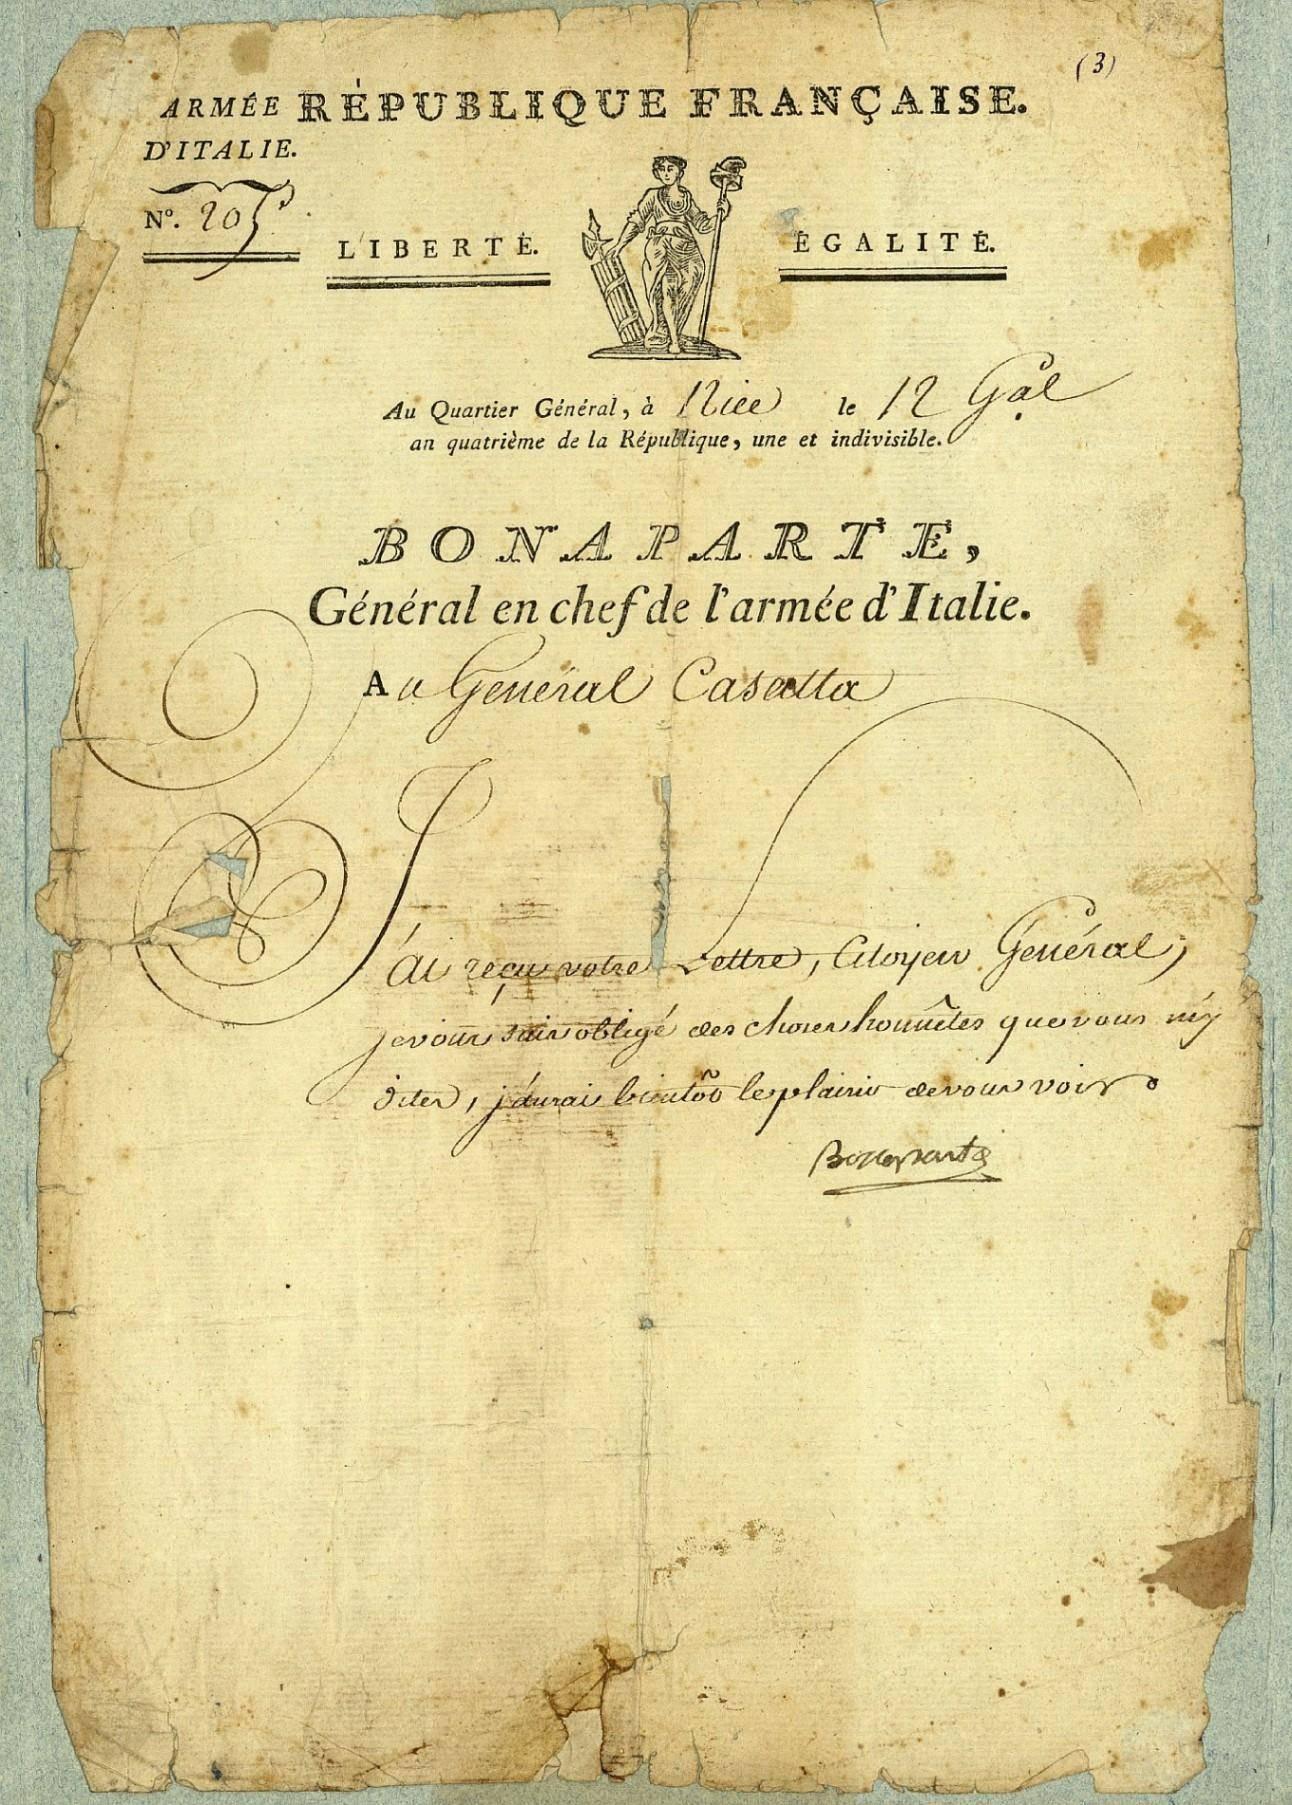 (3)
ARMÉE RÉPUBLIQUE FRANÇAISE.
D'ITALIE.
Nº. 205
LIBERTÉ. ÉGALITÉ.
Au Quartier Général, à Nice le 12 Gal
an quatrième de la République, une et indivisible.
BONAPARTE,
Général en chef de l'armée d'Italie.
Au Général Casalta
J'ai reçu votre Lettre, Citoyen Général,
je vous suis obligé des choses honnêtes que vous m'y
dites, j'aurai bientôt le plaisir de vous voir.
Bonaparte